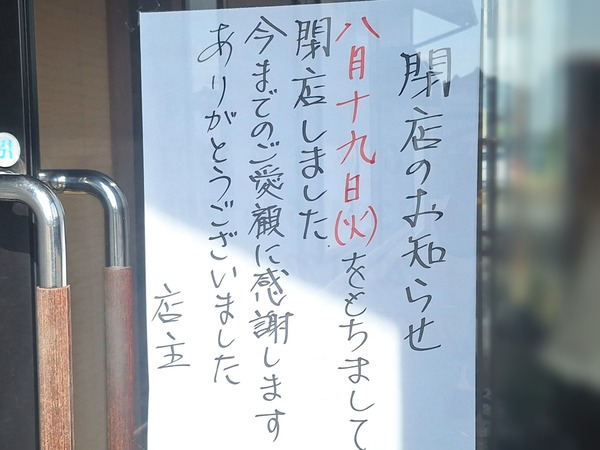 閉店のお知らせ
八月十九日(火)をもちまして
閉店しました.
今までのご愛顧に感謝します
ありがとうございました
店主
引